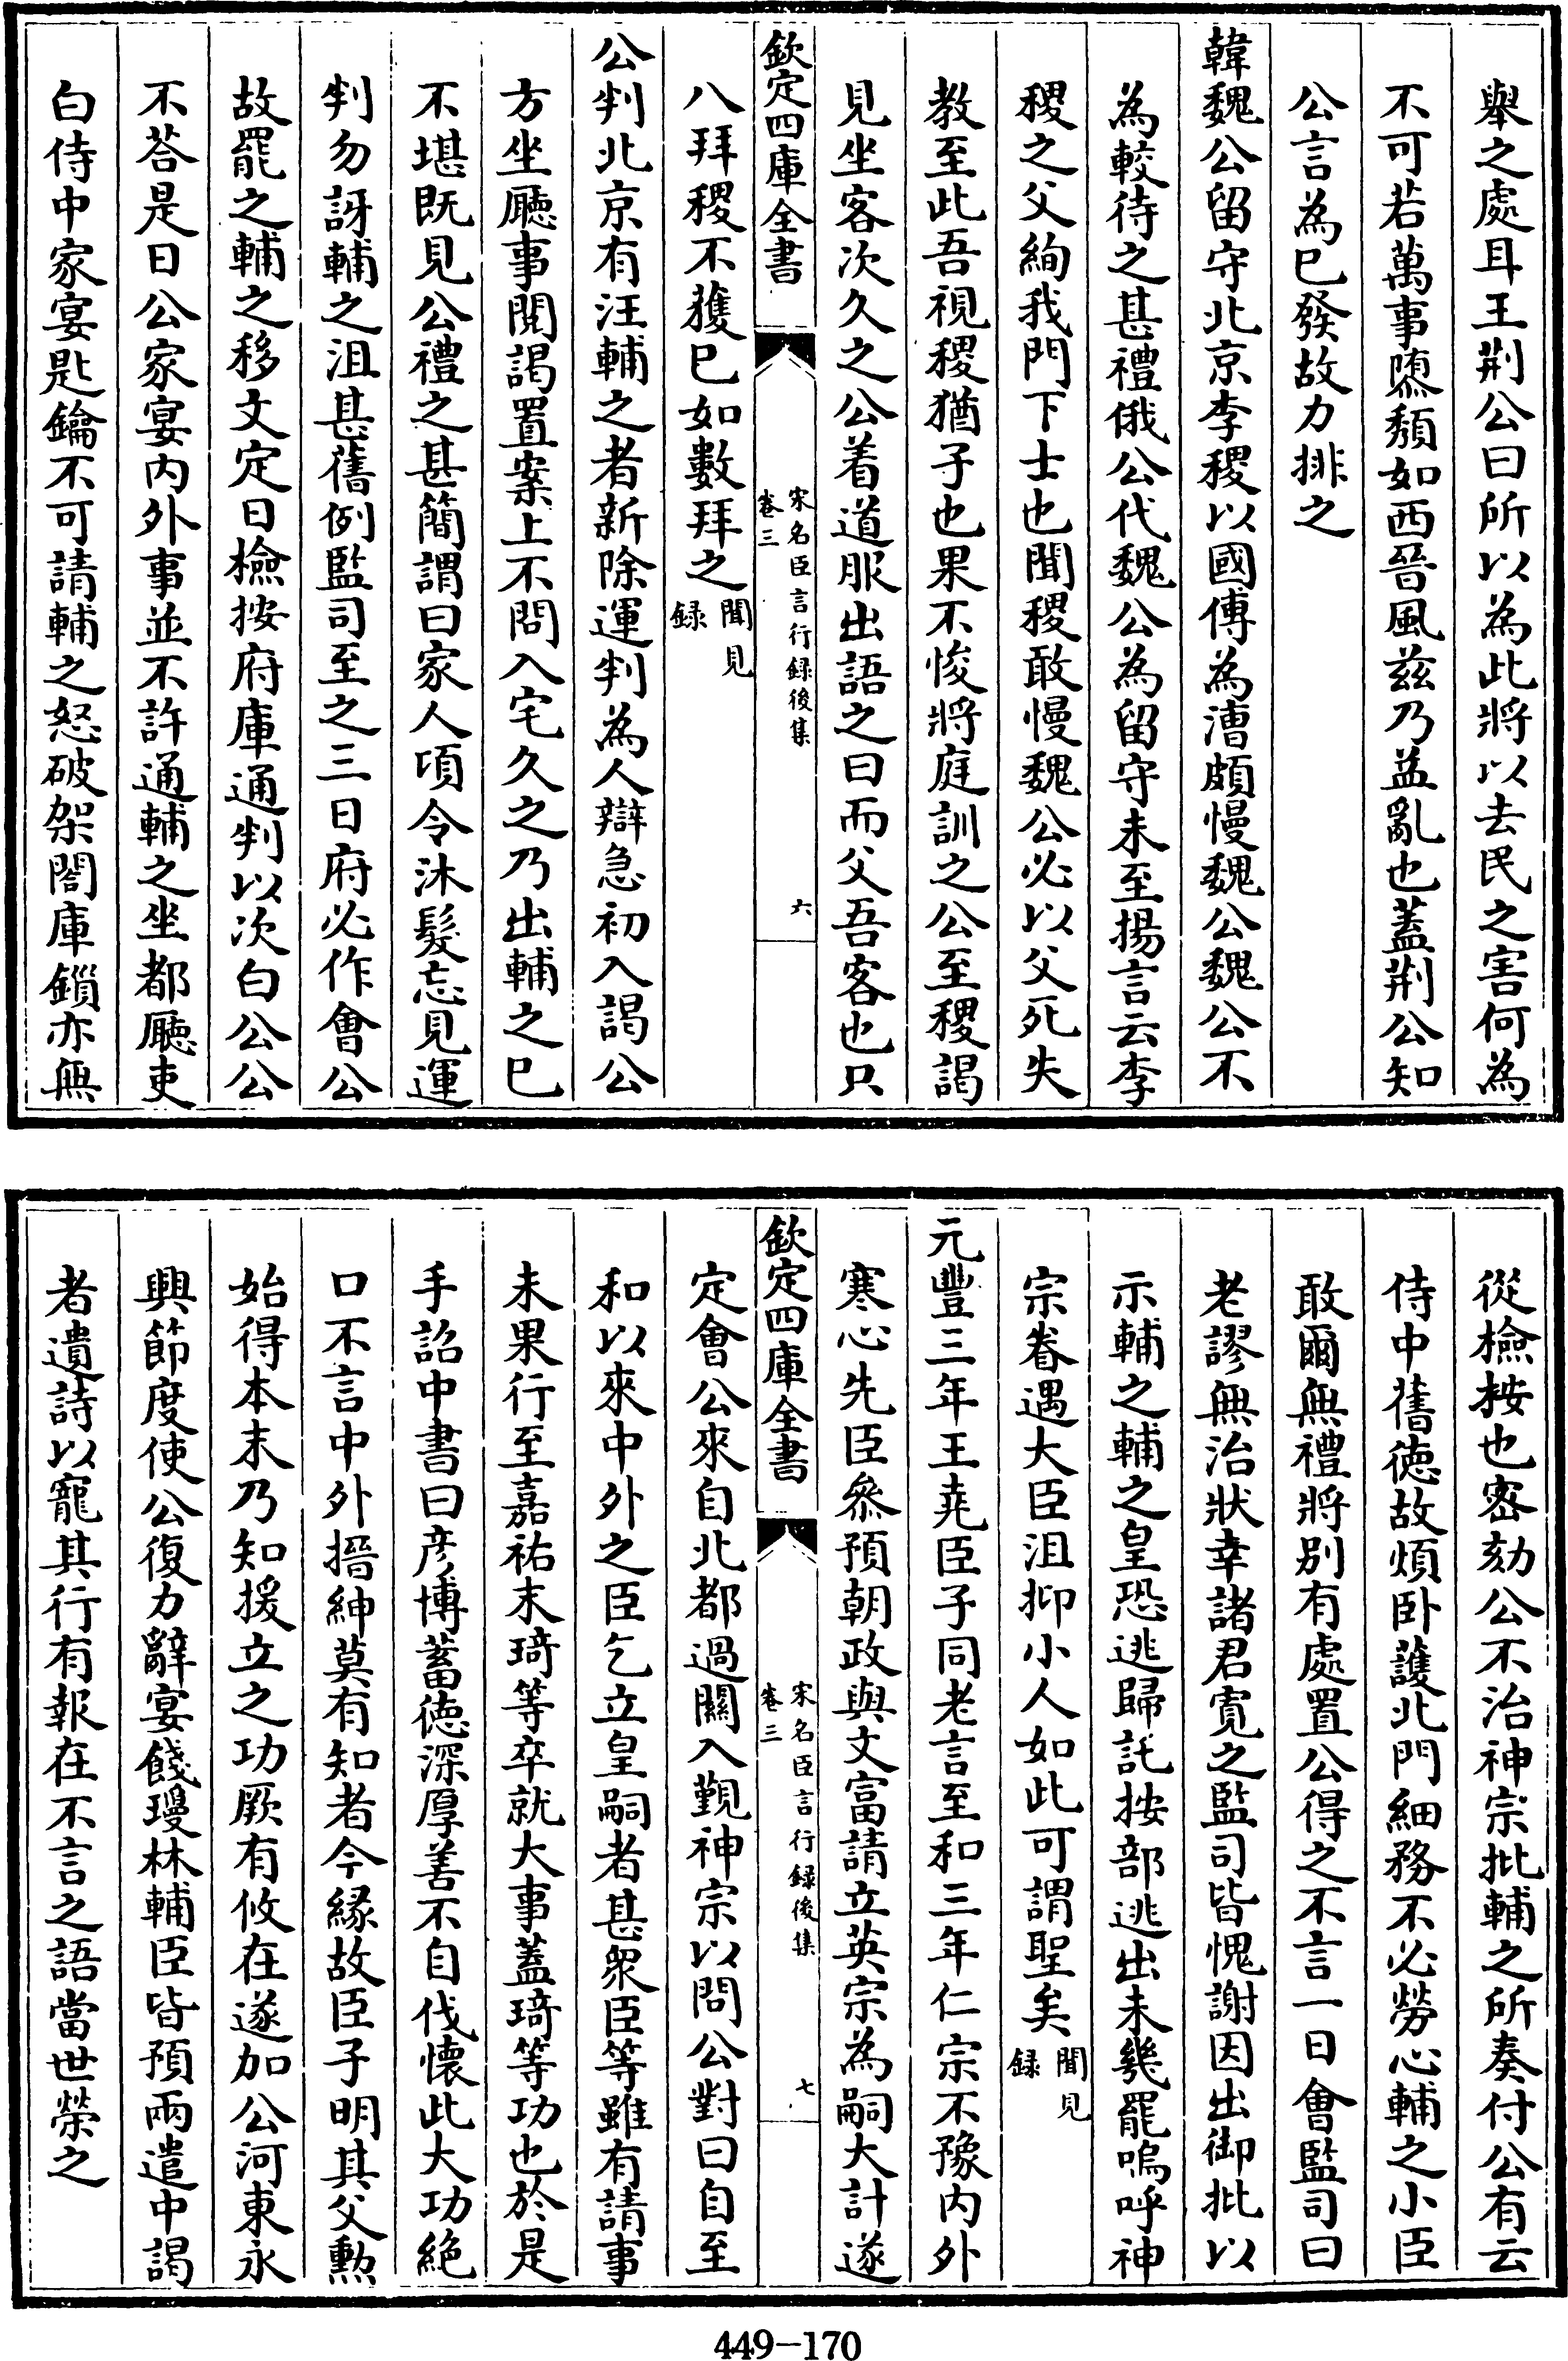 舉之處耳王荆公曰所以為此將以去民之害何為
不可若萬事隳頽如西晉風兹乃益亂也蓋荆公知
公言為已發故力排之
韓魏公留守北京李稷以國傅為漕頗慢魏公魏公不
為較待之甚禮俄公代魏公為留守未至揚言云李
稷之父絢我門下士也聞稷敢慢魏公必以父死失
教至此吾視稷猶子也果不悛將庭訓之公至稷謁
見坐客次久之公着道服出語之曰而父吾客也只
欽定四庫全書
宋名臣言行録後集
卷三
六
八拜稷不獲已如數拜之聞見
録
公判北京有汪輔之者新除運判為人辯急初入謁公
方坐廳事閱謁置案上不問入宅久之乃出輔之已
不堪既見公禮之甚簡謂曰家人項令沐髮忘見運
判勿訝輔之沮甚舊例監司至之三日府必作會公
故罷之輔之移文定日檢按府庫通判以次白公公
不荅是日公家宴内外事並不許通輔之坐都廳吏
白侍中家宴匙鑰不可請輔之怒破架閣庫鎻亦無
從檢按也密劾公不治神宗批輔之所奏付公有云
侍中舊徳故煩卧護北門細務不必勞心輔之小臣
敢爾無禮將别有處置公得之不言一日會監司曰
老謬無治狀幸諸君寛之監司皆愧謝因出御批以
示輔之輔之皇恐逃歸託按部逃出未幾罷嗚呼神
宗眷遇大臣沮抑小人如此可謂聖矣聞見
録
元豐三年王堯臣子同老言至和三年仁宗不豫内外
寒心先臣叅預朝政與文富請立英宗為嗣大計遂
欽定四庫全書
宋名臣言行録後集
卷三
七
定會公來自北都過闗入覲神宗以問公對曰自至
和以來中外之臣乞立皇嗣者甚衆臣等雖有請事
未果行至嘉祐末琦等卒就大事蓋琦等功也於是
手詔中書曰彦博蓄徳深厚善不自伐懷此大功絶
口不言中外搢紳莫有知者今縁故臣子明其父勲
始得本末乃知援立之功厥有攸在遂加公河東永
興節度使公復力辭宴餞瓊林輔臣皆預兩遣中謁
者遺詩以寵其行有報在不言之語當世榮之
449-170